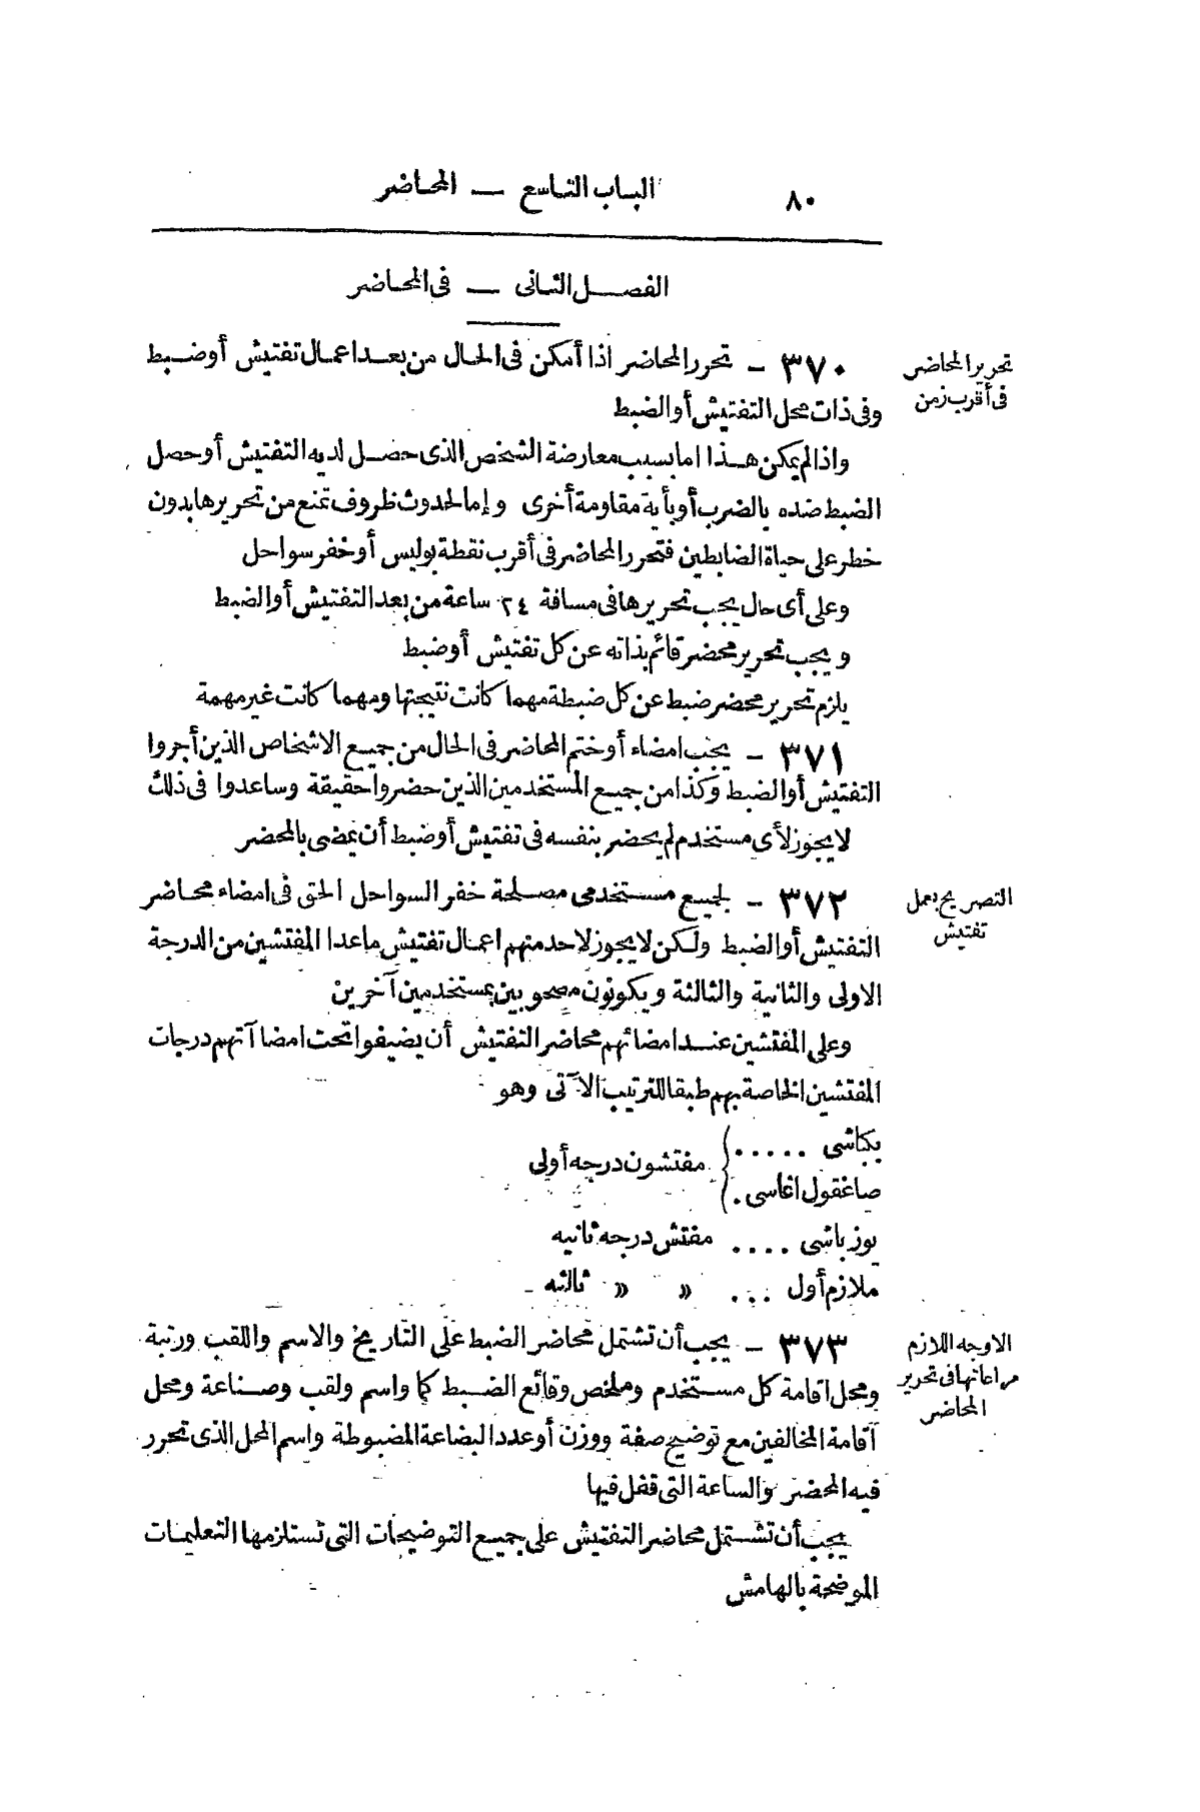 ٨٠
الباب التاسع — المحاضر
الفصل الثانى — فى المحاضر
تحرير المحاضر
فى أقرب زمن
٣٧٠ — تحرر المحاضر اذا أمكن فى الحال من بعد اعمال تفتيش أو ضبط
وفى ذات محل التفتيش أو الضبط
واذا لم يمكن هذا اما بسبب معارضة الشخص الذى حصل لديه التفتيش أو حصل
الضبط ضده بالضرب أو بأية مقاومة أخرى وإما لحدوث ظروف تمنع من تحريرها بدون
خطر على حياة الضابطين فتحرر المحاضر فى أقرب نقطة بوليس أو خفر سواحل
وعلى أى حال يجب تحريرها فى مسافة ٢٤ ساعة من بعد التفتيش أو الضبط
ويجب تحرير محضر قائم بذاته عن كل تفتيش أو ضبط
يلزم تحرير محضر ضبط عن كل ضبطة مهما كانت نتيجتها ومهما كانت غير مهمة
٣٧١ — يجب امضاء أو ختم المحاضر فى الحال من جميع الاشخاص الذين أجروا
التفتيش أو الضبط وكذا من جميع المستخدمين الذين حضروا حقيقة وساعدوا فى ذلك
لا يجوز لأى مستخدم لم يحضر بنفسه فى تفتيش أو ضبط أن يمضى بالمحضر
التصريح بعمل
تفتيش
٣٧٢ — لجميع مستخدمى مصلحة خفر السواحل الحق فى امضاء محاضر
التفتيش أو الضبط ولكن لا يجوز لاحد منهم اعمال تفتيش ماعدا المفتشين من الدرجة
الاولى والثانية والثالثة ويكونون مصحوبين بمستخدمين آخرين
وعلى المفتشين عند امضائهم محاضر التفتيش أن يضيفوا تحت امضاآتهم درجات
المفتشين الخاصة بهم طبقا للترتيب الآتى وهو
بكباشى .....
صاغقول اغاسى . } مفتشون درجه أولى
يوزباشى .... مفتش درجه ثانيه
ملازم أول ... » » ثالثه
الاوجه اللازم
مراعاتها فى تحرير
المحاضر
٣٧٣ — يجب أن تشتمل محاضر الضبط على التاريخ والاسم واللقب ورتبة
ومحل اقامة كل مستخدم وملخص وقائع الضبط كما واسم ولقب وصناعة ومحل
أقامة المخالفين مع توضيح صفة ووزن أو عدد البضاعة المضبوطة واسم المحل الذى تحرر
فيه المحضر والساعة التى قفل فيها
يجب أن تشتمل محاضر التفتيش على جميع التوضيحات التى تستلزمها التعليمات
الموضحة بالهامش